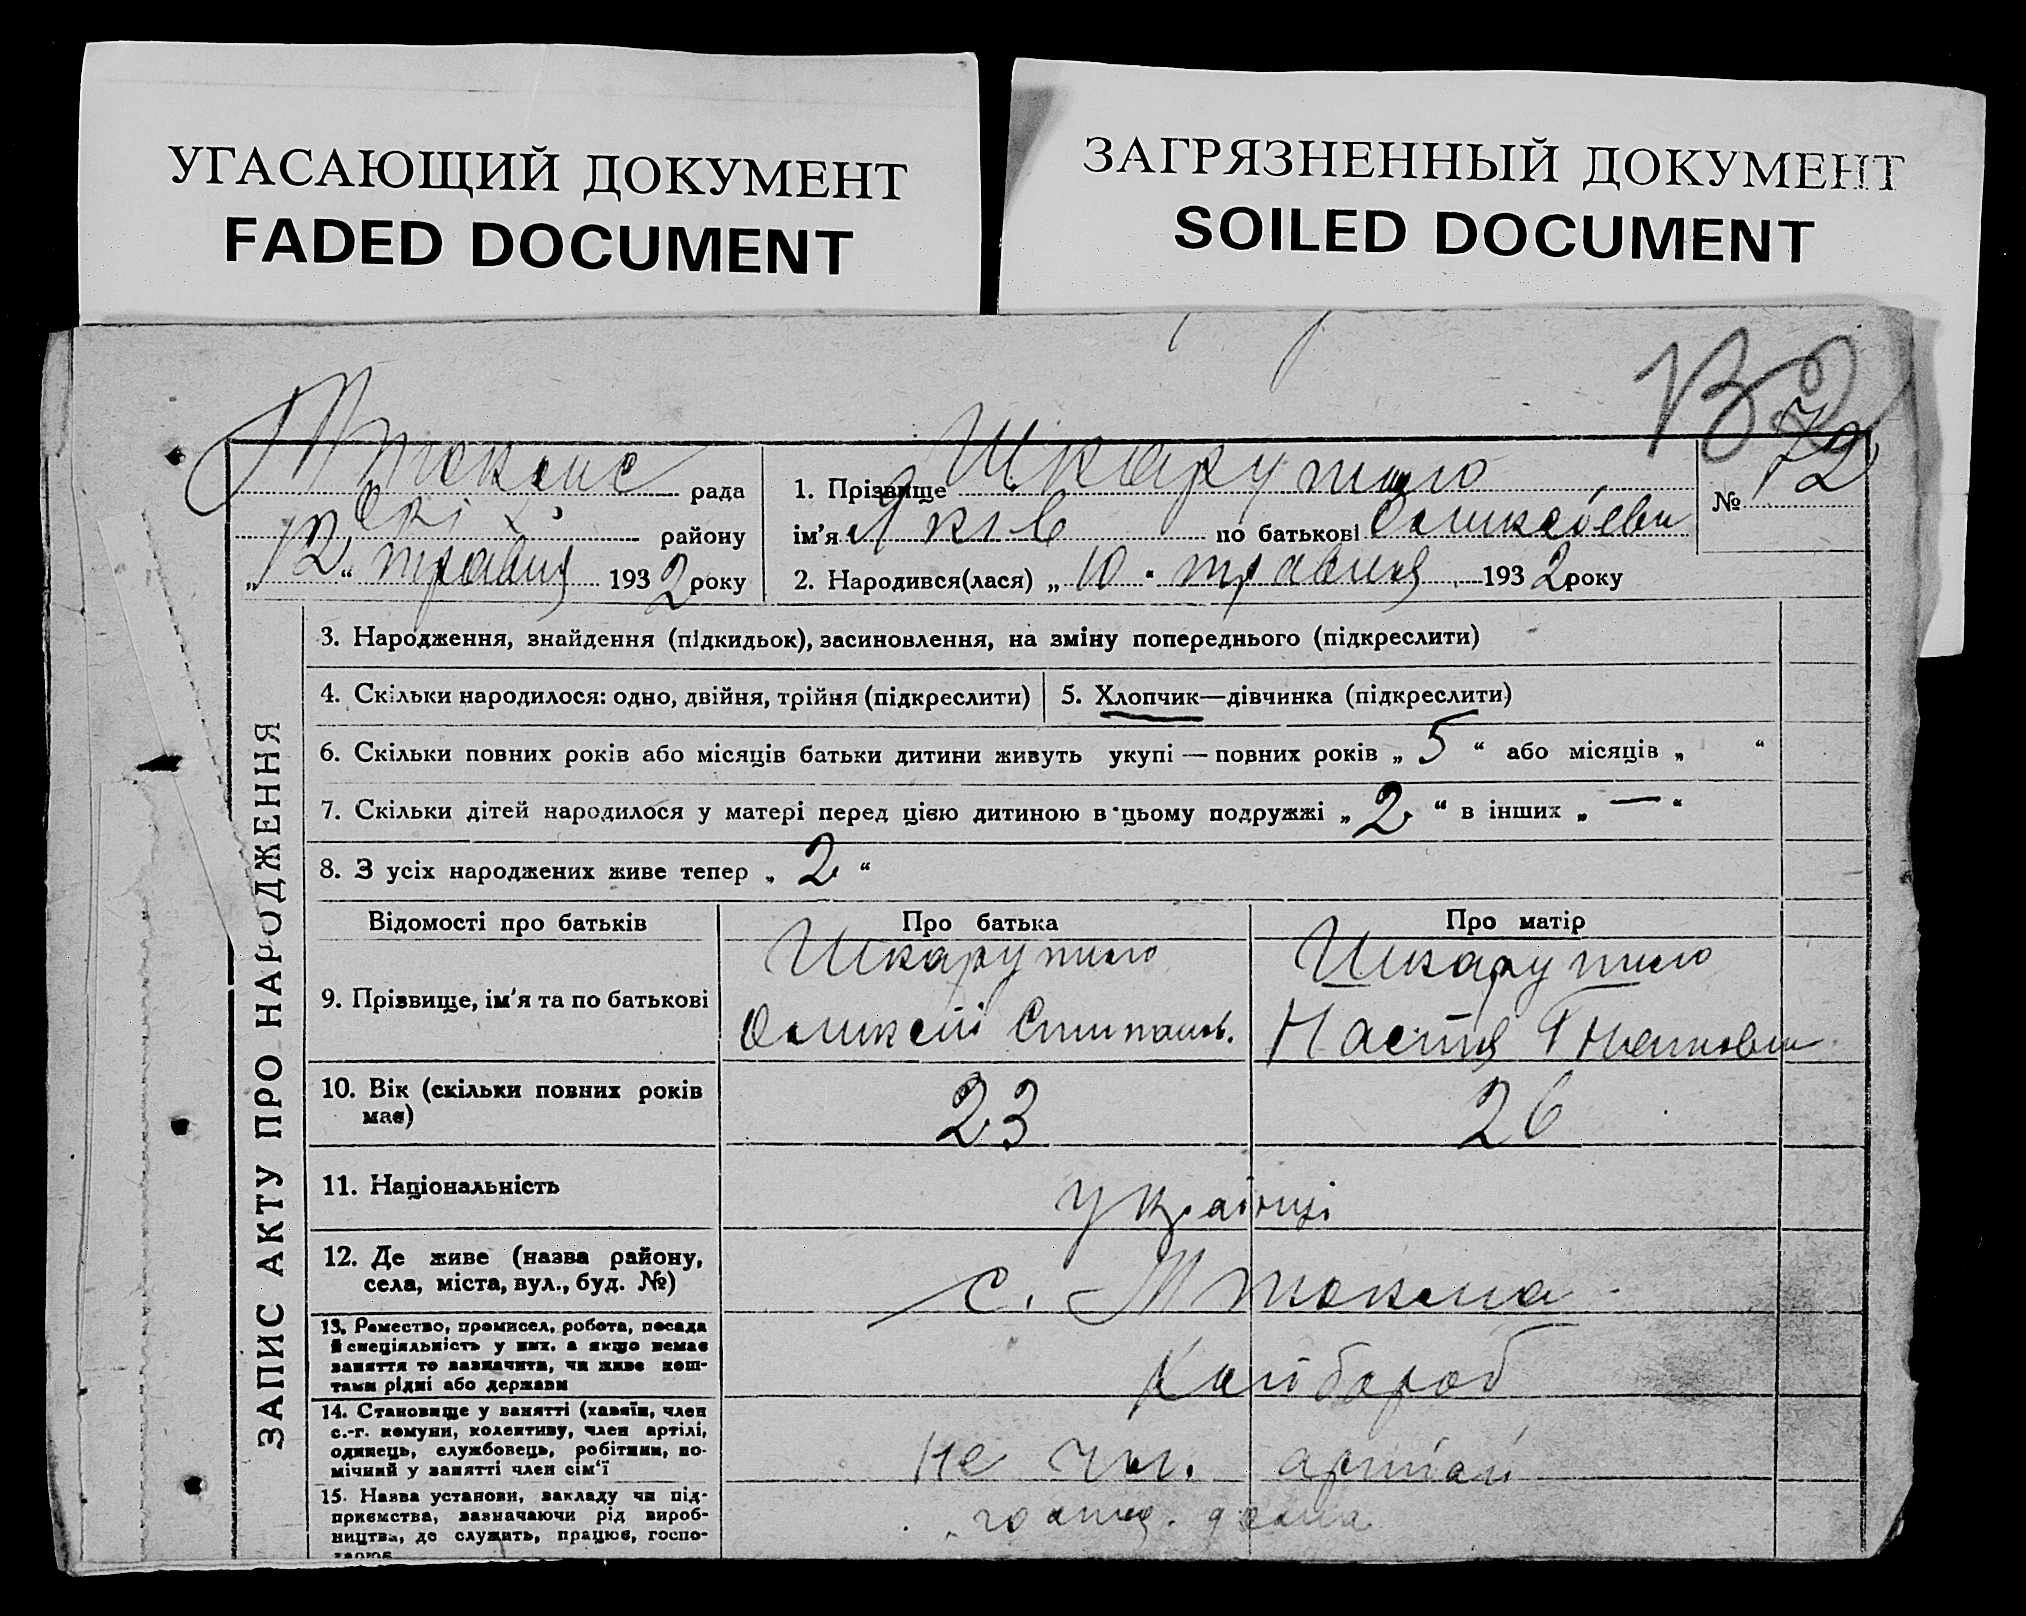 УГАСАЮЩИЙ ДОКУМЕНТ
FADED DOCUMENT
ЗАГРЯЗНЕННЫЙ ДОКУМЕНТ
SOILED DOCUMENT
рада
району
„12“ травня 1932 року
1. Прізвище Шкарупило
ім'я Яків по батькові
2. Народився(лася) „10“ травня 1932 року
№ 72
ЗАПИС АКТУ ПРО НАРОДЖЕННЯ
3. Народження, знайдення (підкидьок), засиновлення, на зміну попереднього (підкреслити)
4. Скільки народилося: одно, двійня, трійня (підкреслити)
5. Хлопчик—дівчинка (підкреслити)
6. Скільки повних років або місяців батьки дитини живуть укупі — повних років „5“ або місяців „ “
7. Скільки дітей народилося у матері перед цією дитиною в цьому подружжі „2“ в інших „—“
8. З усіх народжених живе тепер „2“
Відомості про батьків
Про батька
Про матір
9. Прізвище, ім'я та по батькові
Шкарупило
Шкарупило
Настя
10. Вік (скільки повних років
має)
23
26
11. Національність
Українці
12. Де живе (назва району,
села, міста, вул., буд. №)
с.
13. Ремество, промисел, робота, посада
й спеціяльність у них, а якщо немає
заняття то зазначити, чи живе кош-
тами рідні або держави
хлібороб
14. Становище у занятті (хазяїн, член
с.-г. комуни, колективу, член артілі,
одинець, службовець, робітник, по-
мічний у занятті член сім'ї
не чл. артілі
15. Назва установи, закладу чи під-
приємства, зазначаючи рід вироб-
ництва, де служить, працює, госпо-